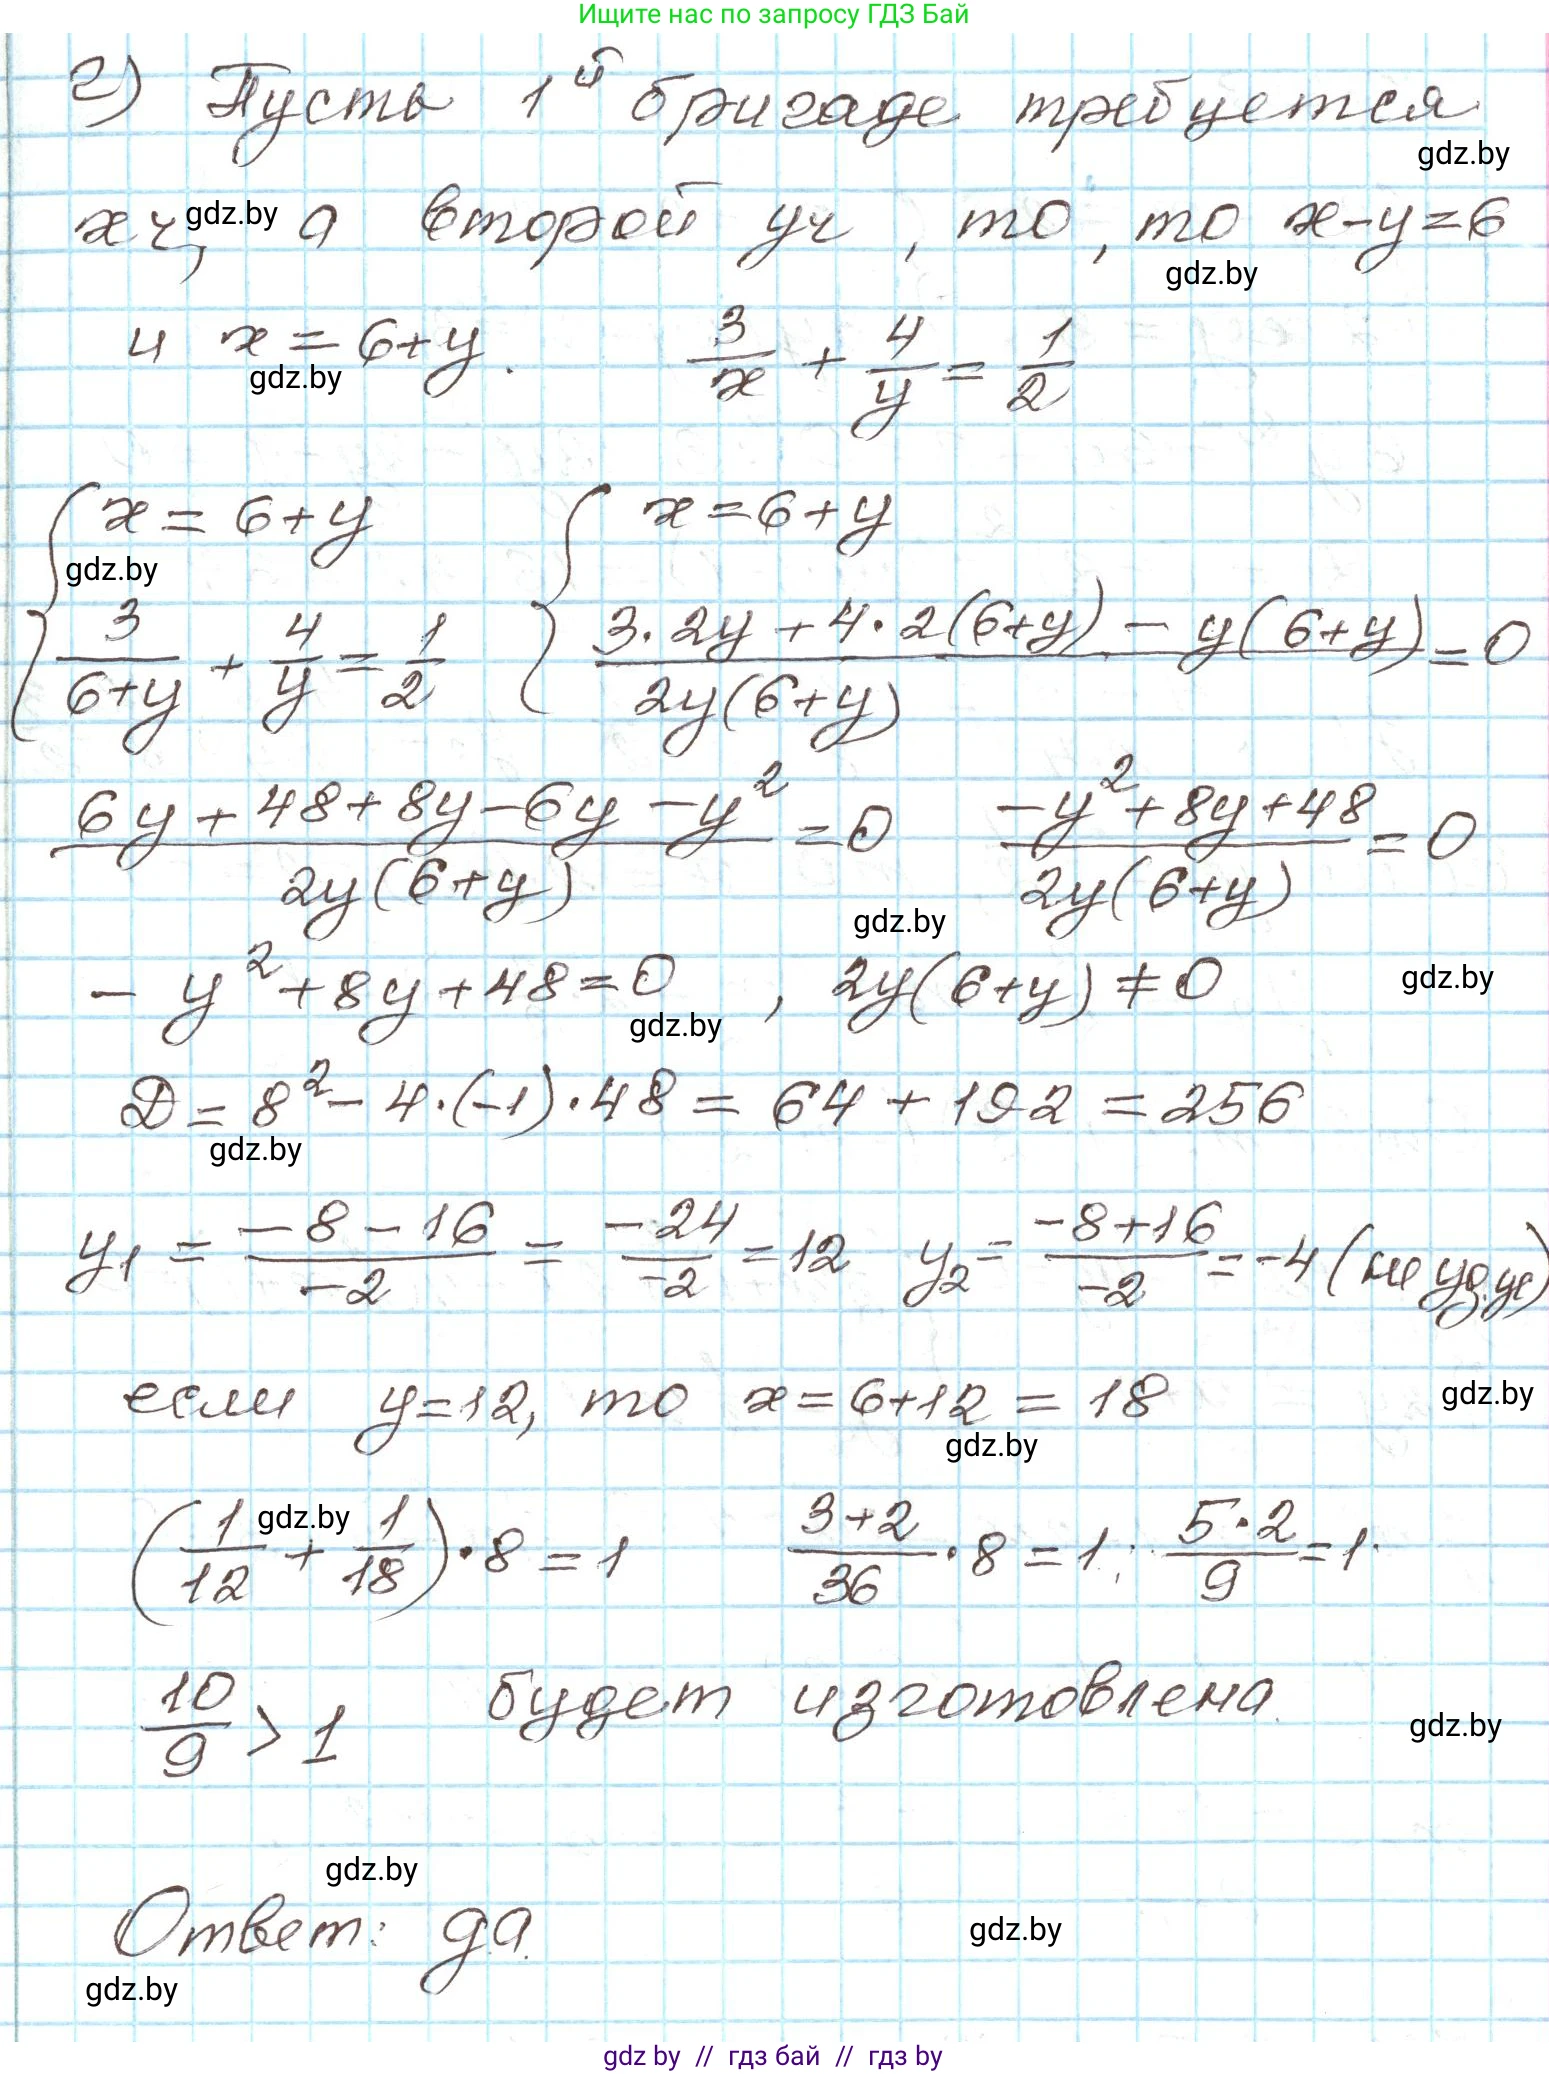 Ищите нас по запросу ГДЗ Бай
г) Пусть 1й бригаде требуется
gdz.by
x ч, а второй y ч, то, то x-y=6
gdz.by
gdz.by
и x=6+y. 3/x + 4/y = 1/2
gdz.by
{x=6+y {x=6+y
gdz.by
{3/(6+y) + 4/y = 1/2 {(3·2y+4·2(6+y)-y(6+y))/(2y(6+y)) = 0
(6y+48+8y-6y-y²)/(2y(6+y)) = 0 (-y²+8y+48)/(2y(6+y)) = 0
gdz.by
-y²+8y+48=0, 2y(6+y)≠0
gdz.by
gdz.by
D=8²-4·(-1)·48=64+192=256
gdz.by
y₁ = (-8-16)/(-2) = (-24)/(-2) = 12 y₂ = (-8+16)/(-2) = -4 (не уд. ус)
если y=12, то x=6+12=18
gdz.by
gdz.by
(1/12 + 1/18)·8=1 (3+2)/36·8=1; (5·2)/9=1
gdz.by
10/9 > 1 будет изготовлена
gdz.by
gdz.by
Ответ: да.
gdz.by
gdz.by
gdz by // гдз бай // гдз by